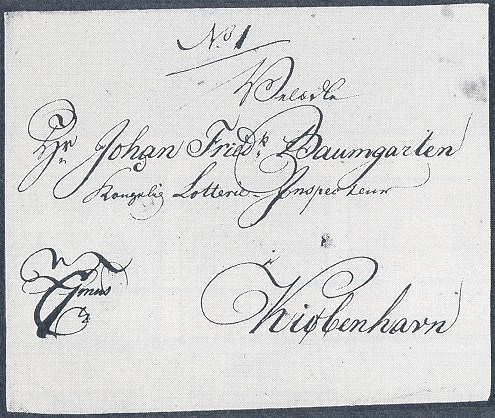 No 1
Velædle
Hr Johan Friedk. Baumgarten
Kongelig Lotterie-Inspecteur
i
Kiøbenhavn